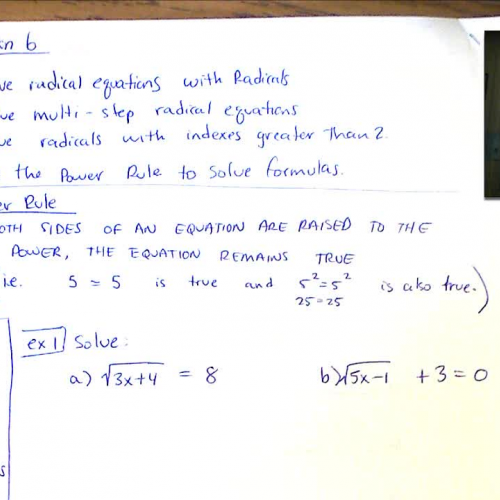 6
radical equations with Radicals
multi-step radical equations
radicals with indexes greater Than 2.
the Power Rule to solve formulas.
Rule
SIDES OF AN EQUATION ARE RAISED TO THE
POWER, THE EQUATION REMAINS TRUE
i.e. 5 = 5 is true and 5² = 5² is also true.)
25 = 25
ex 1 Solve:
a) √3x+4 = 8 b) √5x-1 + 3 = 0
s